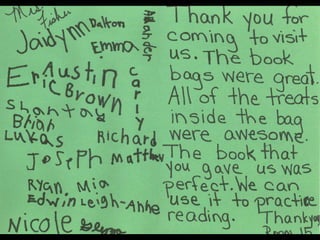 Mrs. Fisher
Jaidynn
Dalton
Emma
Austin
Eric Brown
Carly
Shantay
Brian
Lukas
Richard
Joseph
Matthew
Ryan, Mia
Edwin Leigh-Anne
Nicole
Thank you for
coming to visit
us. The book
bags were great.
All of the treats
inside the bag
were awesome.
The book that
you gave us was
perfect. We can
use it to practice
reading. Thankyou
Room 15